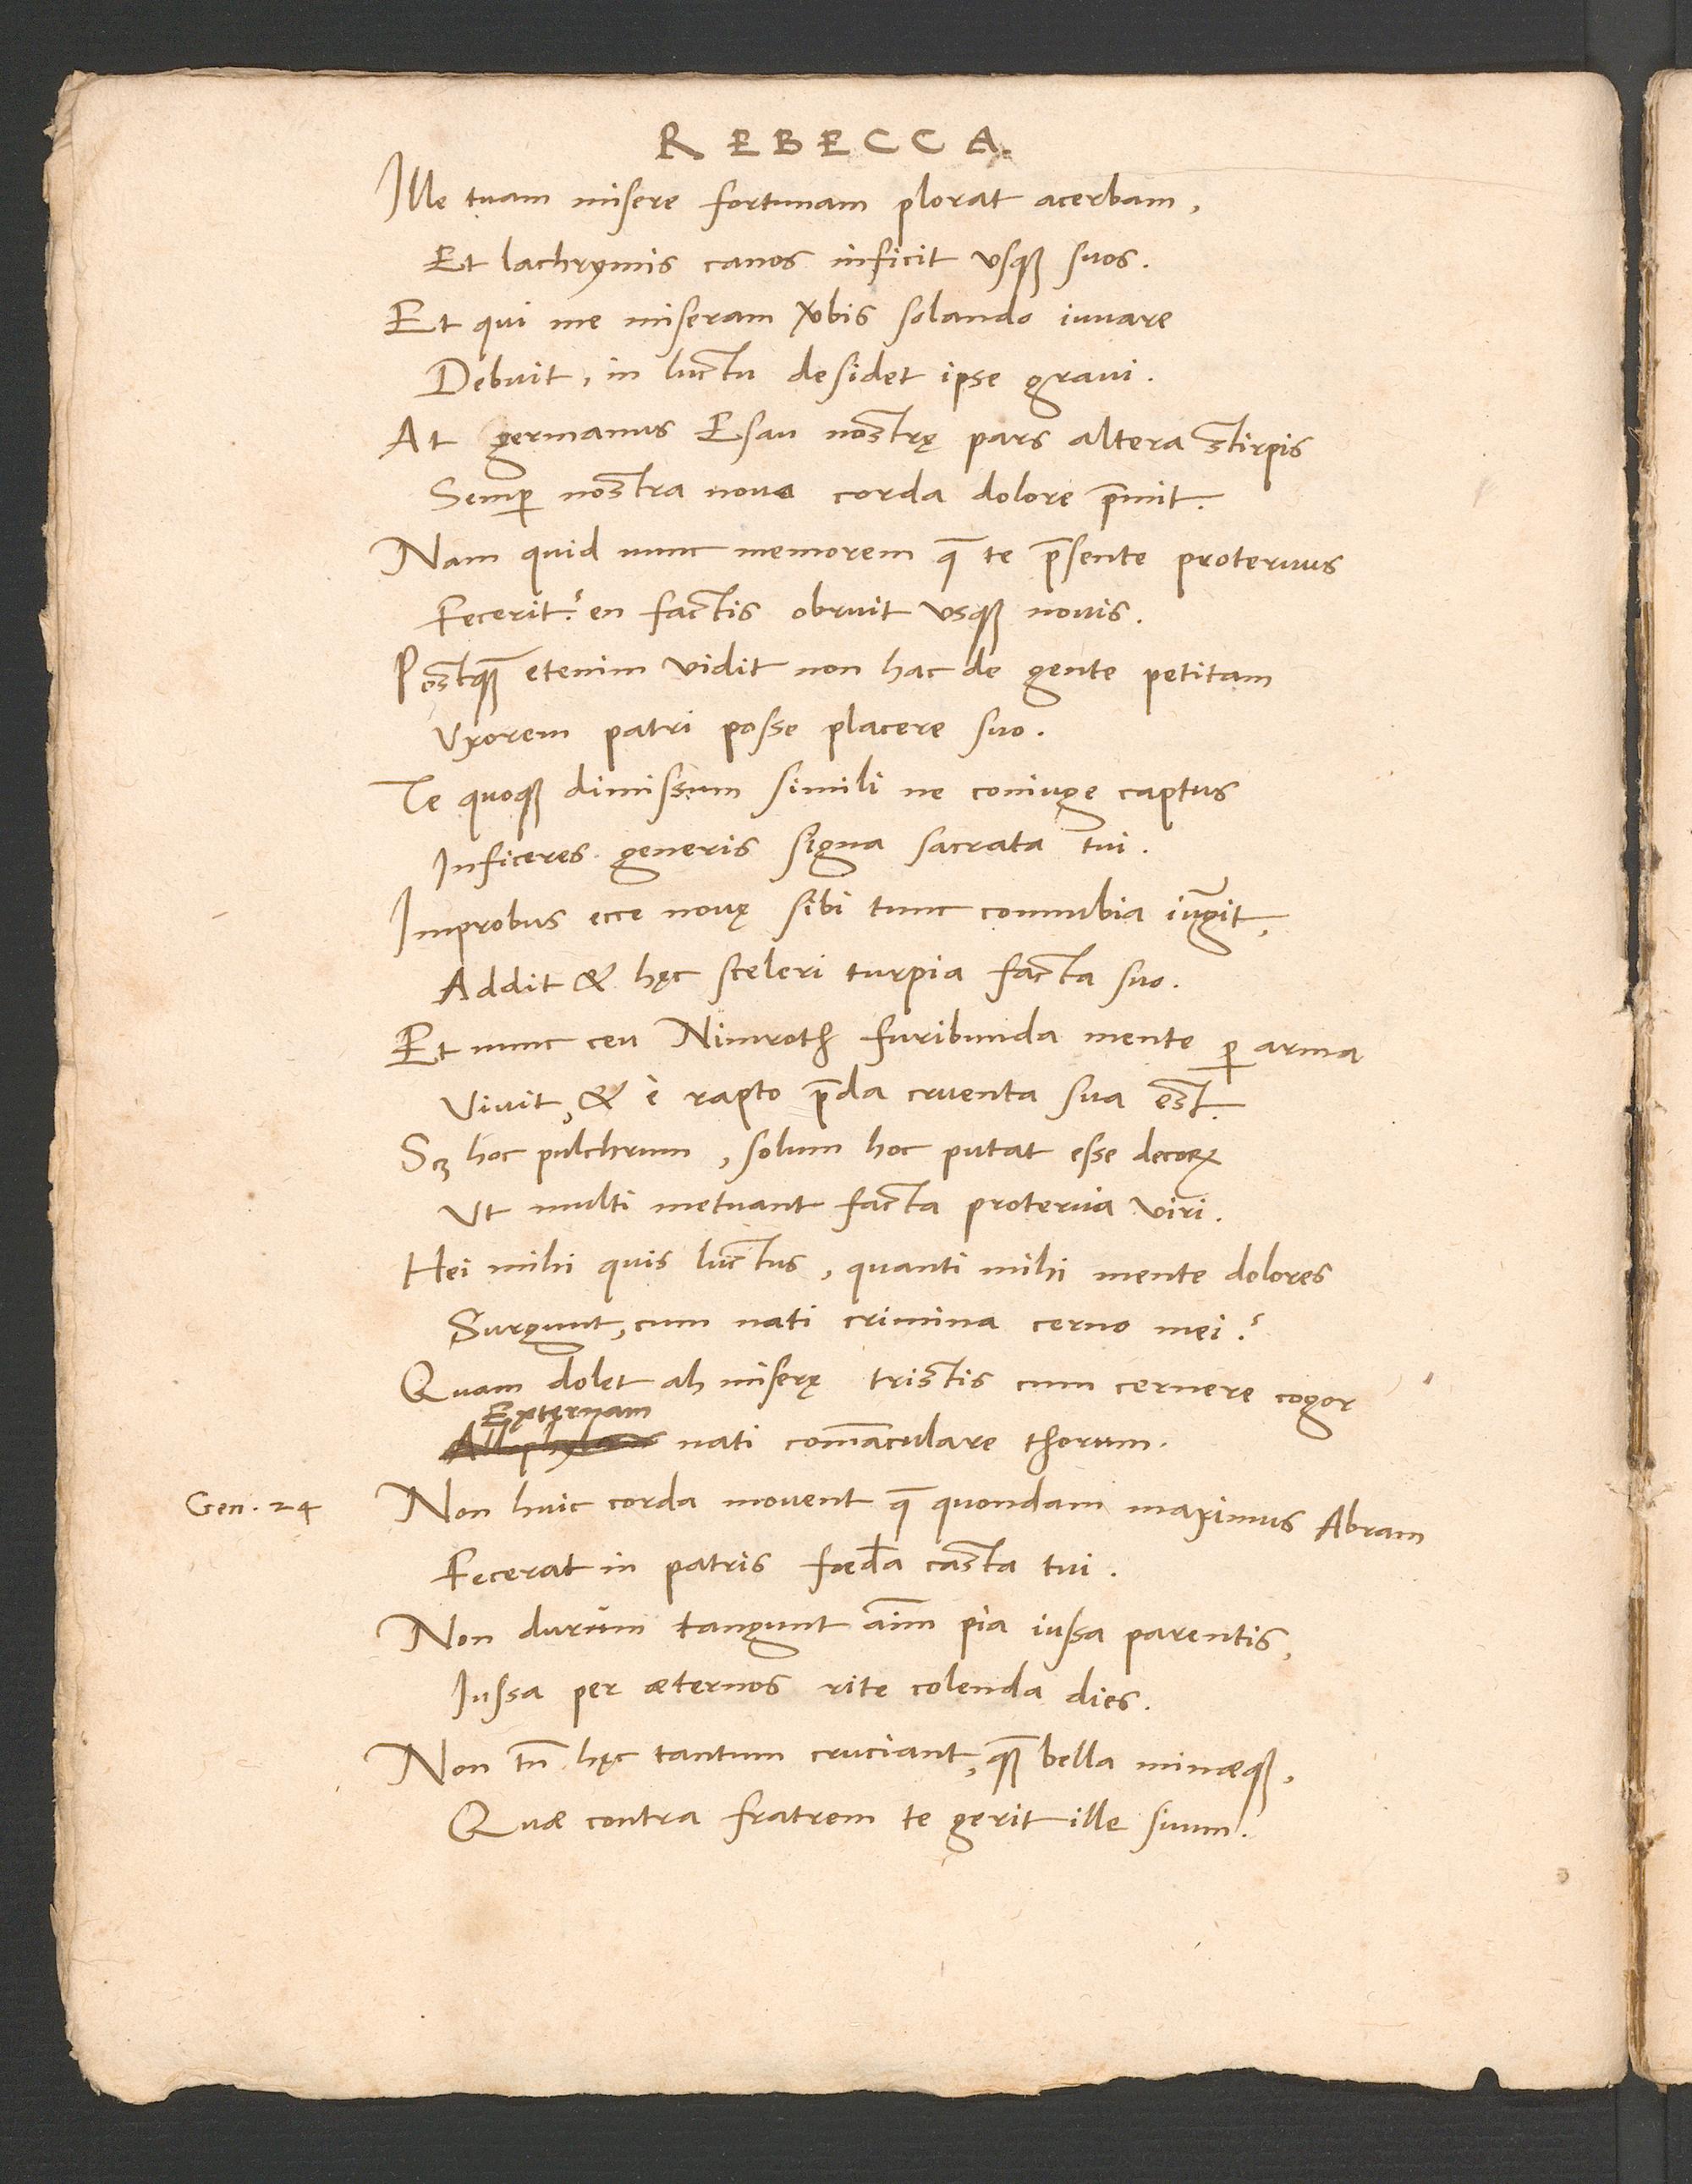 REBECCA.
Ille tuam misere fortunam plorat acerbam,
Et lachrymis canos inficit vsqꝫ suos.
Et qui me miseram v̄bis solando iuuare
Debuit, in luctu desidet ipse graui.
At germanus Esau nostrę pars altera stirpis
Semꝑ nostra nouo corda dolore p̄mit.
Nam quid nunc memorem q̄ te p̄sente proteruus
Fecerit? en factis obruit vsqꝫ nouis.
Postqꝫ̄ etenim vidit non hac de gente petitam
Vxorem patri posse placere suo.
Te quoqꝫ dimissum simili ne coniuge captus
Inficeres generis signa sacrata tui.
Improbus ecce nouę sibi tunc connubia iūgit,
Addit & hęc sceleri turpia facta suo.
Et nunc ceu Nimroth furibunda mente ꝑ arma
Viuit, & è rapto p̄da cruenta sua est.
Sꝫ hoc pulchrum, solum hoc putat esse decorꝝ
Vt multi metuant facta proterua viri.
Hei mihi quis luctus, quanti mihi mente dolores
Surgunt, cum nati crimina cerno mei?
Quam dolet ah miserę tristis cum cernere cogor
Externam
Allophylam nati com̄aculare thorum.
Gen. 24 Non huic corda mouent q̄ quondam maximus Abram
Fecerat in patris foed̄a casta tui.
Non durūm tangunt aīm pia iussa parentis,
Iussa per æternos rite colenda dies.
Non tn̄ hęc tantum cruciant, qꝫ̄ bella minæqꝫ,
Quæ contra fratrem te gerit ille suum.